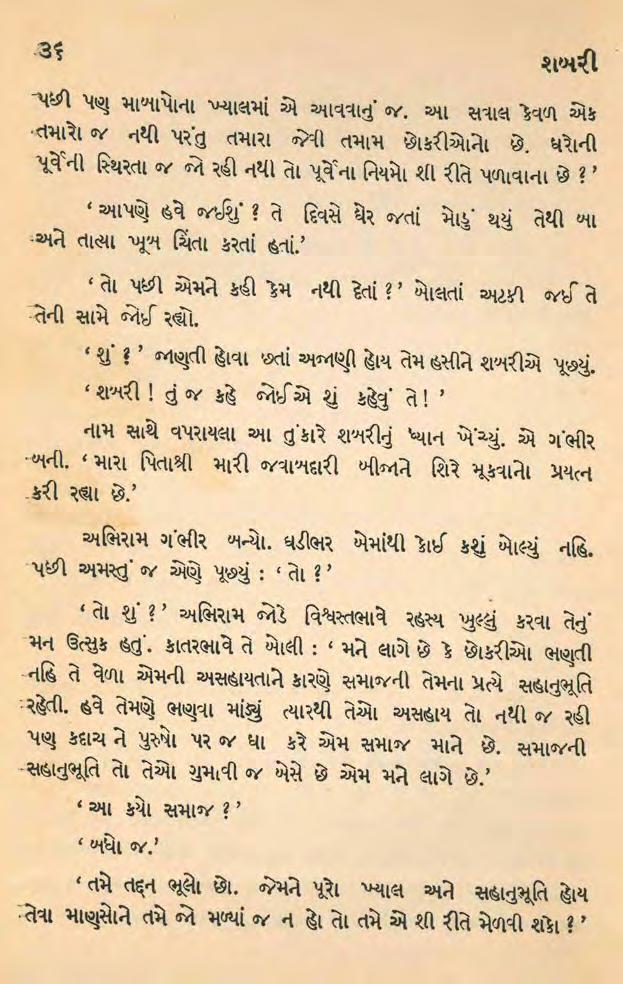 ૩૬
શબરી
પછી પણ માબાપોના ખ્યાલમાં એ આવવાનું જ. આ સવાલ કેવળ એક
તમારો જ નથી પરંતુ તમારા જેવી તમામ છોકરીઓનો છે. ઘરોની
પૂર્વેની સ્થિરતા જ જો રહી નથી તો પૂર્વેના નિયમો શી રીતે પળાવાના છે ?’
‘ આપણે હવે જઈશું ? તે દિવસે ઘેર જતાં મોડું થયું તેથી બા
અને તાત્યા ખૂબ ચિંતા કરતાં હતાં.’
‘ તો પછી એમને કહી કેમ નથી દેતાં ?’ બોલતાં અટકી જઈ તે
તેની સામે જોઈ રહ્યો.
‘ શું ? ’ જાણતી હોવા છતાં અજાણી હોય તેમ હસીને શબરીએ પૂછ્યું.
‘ શબરી ! તું જ કહે જોઈએ શું કહેવું તે ! ’
નામ સાથે વપરાયલા આ તુંકારે શબરીનું ધ્યાન ખેંચ્યું. એ ગંભીર
બની. ‘ મારા પિતાશ્રી મારી જવાબદારી બીજાને શિરે મૂકવાનો પ્રયત્ન
કરી રહ્યા છે.’
અભિરામ ગંભીર બન્યો. ઘડીભર બેમાંથી કોઈ કશું બોલ્યું નહિ.
પછી અમસ્તું જ એણે પૂછ્યું : ‘ તો ?’
‘ તો શું ?’ અભિરામ જોડે વિશ્વસ્તભાવે રહસ્ય ખુલ્લું કરવા તેનું
મન ઉત્સુક હતું. કાતરભાવે તે બોલી : ‘ મને લાગે છે કે છોકરીઓ ભણતી
નહિ તે વેળા એમની અસહાયતાને કારણે સમાજની તેમના પ્રત્યે સહાનુભૂતિ
રહેતી. હવે તેમણે ભણવા માંડ્યું ત્યારથી તેઓ અસહાય તો નથી જ રહી
પણ કદાચ ને પુરુષો પર જ ઘા કરે એમ સમાજ માને છે. સમાજની
સહાનુભૂતિ તો તેઓ ગુમાવી જ બેસે છે એમ મને લાગે છે.’
‘ આ કયો સમાજ ?’
‘ બધો જ.’
‘ તમે તદ્દન ભૂલો છો. જેમને પૂરો ખ્યાલ અને સહાનુભૂતિ હોય
તેવા માણસોને તમે જો મળ્યાં જ ન હો તો તમે એ શી રીતે મેળવી શકો ? ’